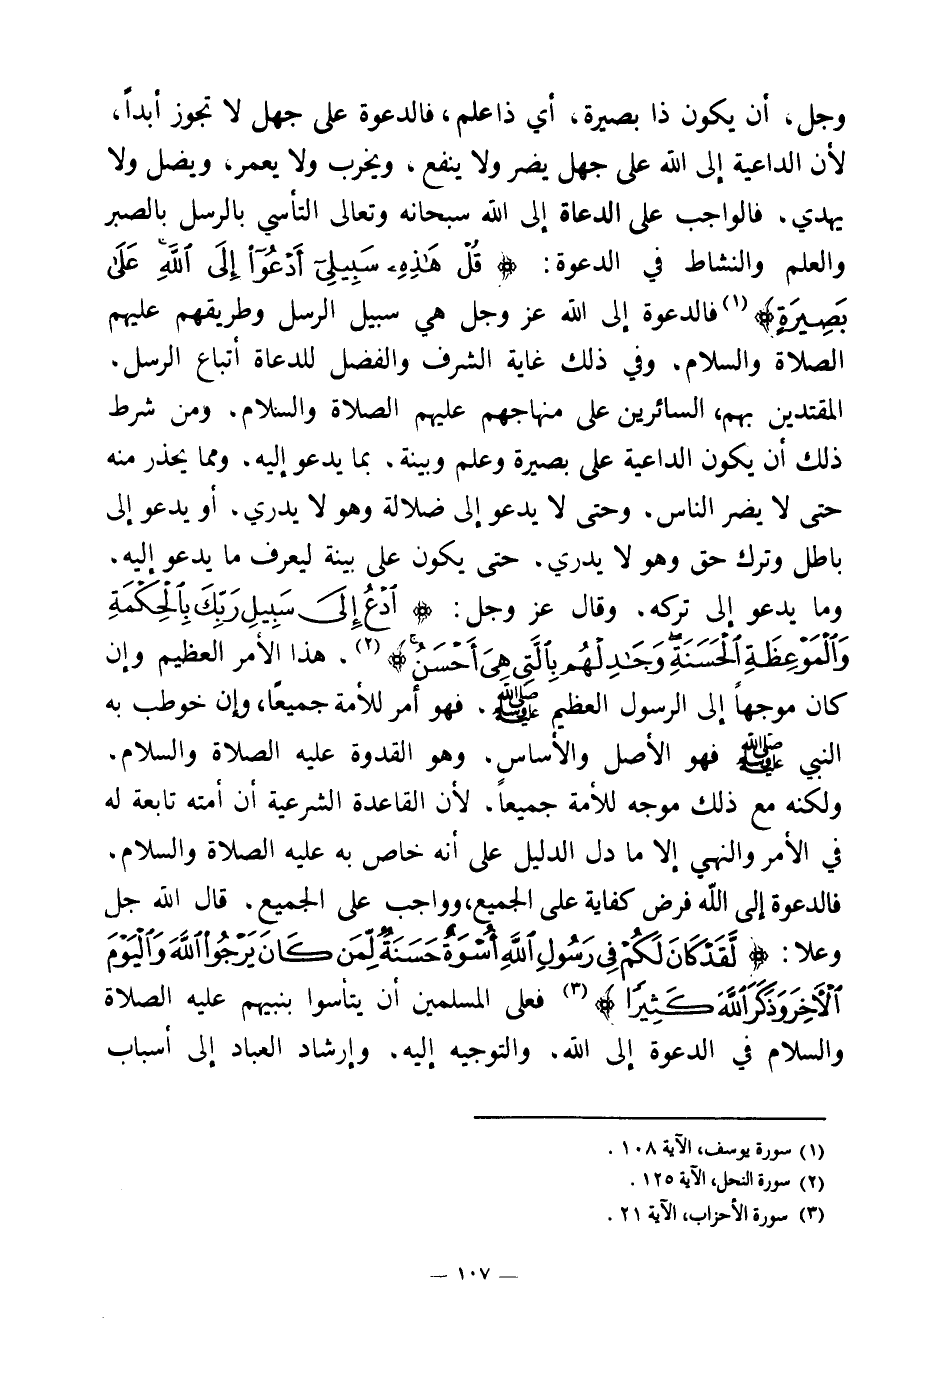 وجل، أن يكون ذا بصيرة، أي ذا علم، فالدعوة على جهل لا تجوز أبداً،
لأن الداعية إلى الله على جهل يضر ولا ينفع، ويخرب ولا يعمر، ويضل ولا
يهدي. فالواجب على الدعاة إلى الله سبحانه وتعالى التأسي بالرسل بالصبر
والعلم والنشاط في الدعوة: ﴿ قُلْ هَٰذِهِۦ سَبِيلِىٓ أَدْعُوٓا۟ إِلَى ٱللَّهِ ۚ عَلَىٰ
بَصِيرَةٍ﴾ (١) فالدعوة إلى الله عز وجل هي سبيل الرسل وطريقهم عليهم
الصلاة والسلام. وفي ذلك غاية الشرف والفضل للدعاة أتباع الرسل.
المقتدين بهم، السائرين على منهاجهم عليهم الصلاة والسلام. ومن شرط
ذلك أن يكون الداعية على بصيرة وعلم وبينة. بما يدعو إليه. ومما يحذر منه
حتى لا يضر الناس. وحتى لا يدعو إلى ضلالة وهو لا يدري. أو يدعو إلى
باطل وترك حق وهو لا يدري. حتى يكون على بينة ليعرف ما يدعو إليه.
وما يدعو إلى تركه. وقال عز وجل: ﴿ ٱدْعُ إِلَىٰ سَبِيلِ رَبِّكَ بِٱلْحِكْمَةِ
وَٱلْمَوْعِظَةِ ٱلْحَسَنَةِ ۖ وَجَٰدِلْهُم بِٱلَّتِى هِىَ أَحْسَنُ ۚ ﴾ (٢). هذا الأمر العظيم وإن
كان موجهاً إلى الرسول العظيم ﷺ. فهو أمر للأمة جميعًا، وإن خوطب به
النبي ﷺ فهو الأصل والأساس. وهو القدوة عليه الصلاة والسلام.
ولكنه مع ذلك موجه للأمة جميعاً. لأن القاعدة الشرعية أن أمته تابعة له
في الأمر والنهي إلا ما دل الدليل على أنه خاص به عليه الصلاة والسلام.
فالدعوة إلى الله فرض كفاية على الجميع، وواجب على الجميع. قال الله جل
وعلا: ﴿ لَّقَدْ كَانَ لَكُمْ فِى رَسُولِ ٱللَّهِ أُسْوَةٌ حَسَنَةٌ لِّمَن كَانَ يَرْجُوا۟ ٱللَّهَ وَٱلْيَوْمَ
ٱلْءَاخِرَ وَذَكَرَ ٱللَّهَ كَثِيرًا ﴾ (٣) فعلى المسلمين أن يتأسوا بنبيهم عليه الصلاة
والسلام في الدعوة إلى الله. والتوجيه إليه. وإرشاد العباد إلى أسباب
(١) سورة يوسف، الآية ١٠٨.
(٢) سورة النحل، الآية ١٢٥.
(٣) سورة الأحزاب، الآية ٢١.
— ١٠٧ —